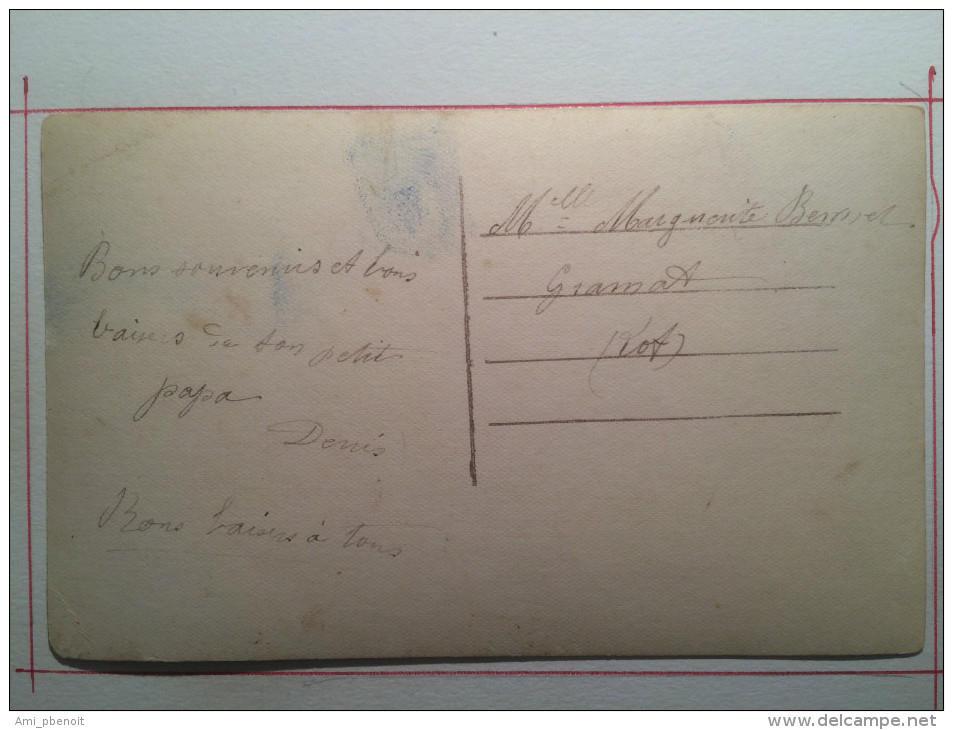 Bons souvenirs et bons
baisers de ton petit
papa
Denis
Bons baisers à tous
Melle Marguerite
Gramat
(Lot)
Ami_pbenoit
www.delcampe.net